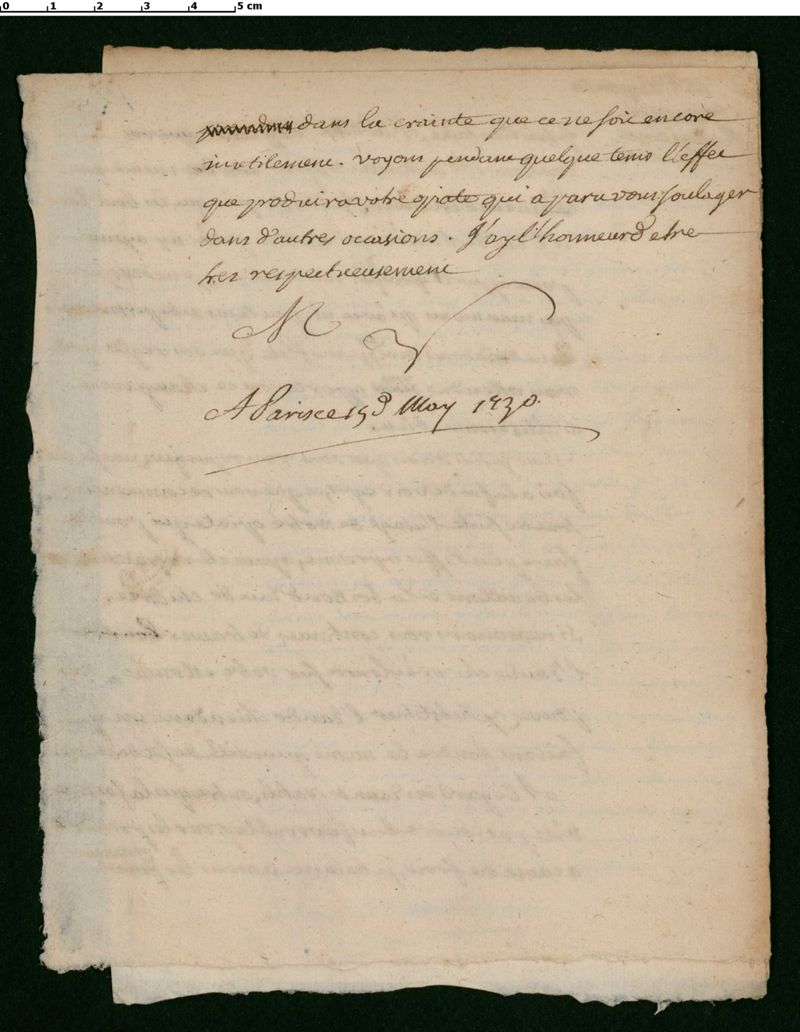 0 1 2 3 4 5 cm
dans la crainte que ce ne soit encore
inutilement. voyons pendant quelque tems l'effet
que produira votre opiate qui a paru vous soulager
dans d'autres occasions. J'ay l'honneur d'etre
tres respectueusement
M
A Paris ce May 1730.